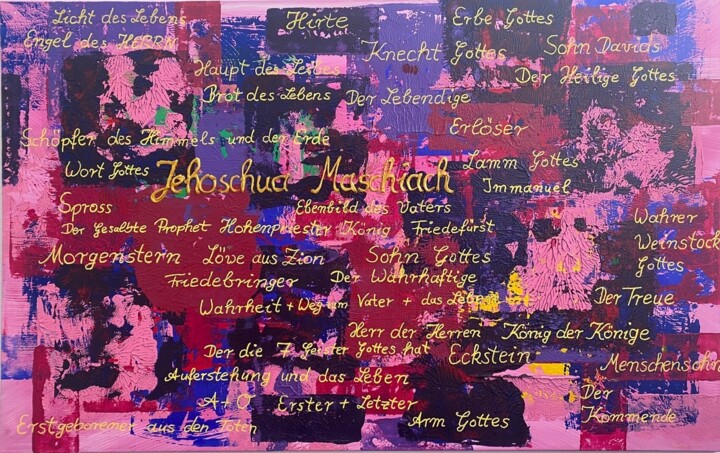 Licht des Lebens
Hirte
Erbe Gottes
Engel des HERRN
Knecht Gottes
Sohn Davids
Haupt des Leibes
Der Heilige Gottes
Brot des Lebens
Der Lebendige
Erlöser
Schöpfer des Himmels und der Erde
Wort Gottes
Jehoschua Maschiach
Lamm Gottes
Immanuel
Spross
Ebenbild des Vaters
Wahrer
Weinstock
Gottes
Der Gesalbte Prophet Hohenpriester König Friedefürst
Morgenstern
Löve aus Zion
Sohn Gottes
Friedebringer
Der Wahrhaftige
Wahrheit + Weg zum Vater + das Leben
Der Treue
Herr der Herren
König der Könige
Der die 7 Geister Gottes hat
Eckstein
Menschensohn
Auferstehung und das Leben
A+O
Erster + Letzter
Der
Kommende
Arm Gottes
Erstgeborener aus den Toten